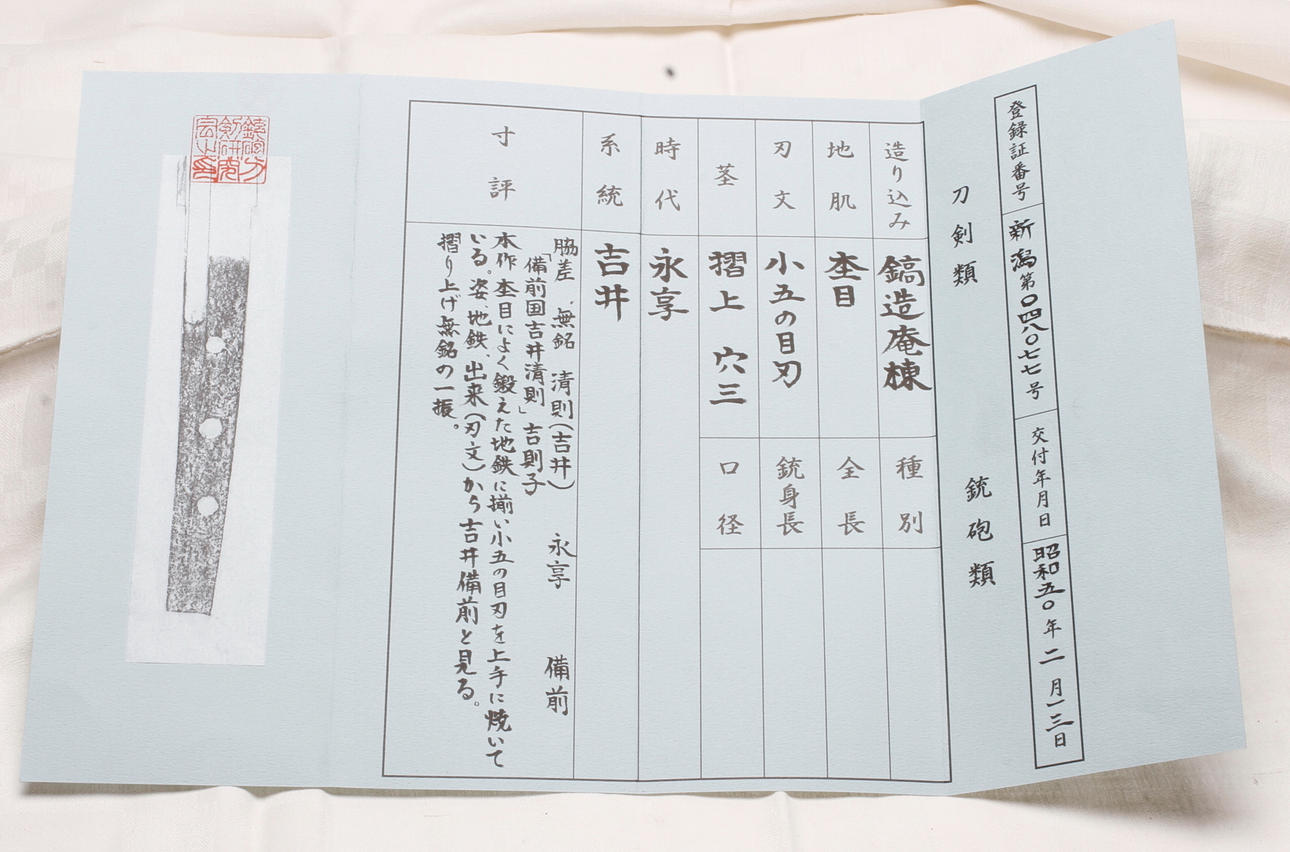 登録証番号 新潟 第〇四八〇七七号 交付年月日 昭和五〇年二月一三日
刀剣類 銃砲類
造り込み 鎬造庵棟 種別
地肌 杢目 全長
刃文 小五の目刃 銃身長
茎 摺上 穴三 口径
時代 永享
系統 吉井
寸評
脇差 無銘 清則(吉井) 永享 備前
「備前国吉井清則」吉則子
本作 杢目によく鍛えた地鉄に揃い小五の目刃を上手に焼いて
いる。姿、地鉄、出来(刃文)から吉井備前と見る。
摺り上げ無銘の一振。